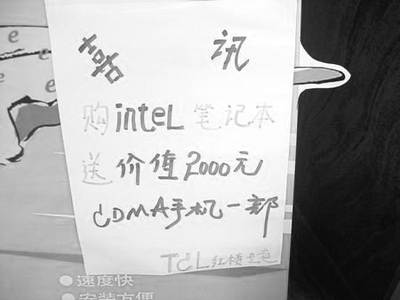 喜 讯
购intel笔记本
送价值2000元
CDMA手机一部
TCL红
速度快
安装方便